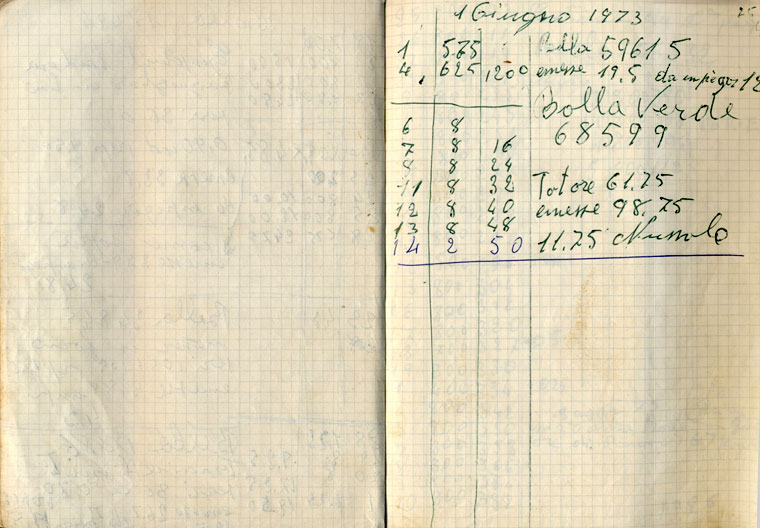 1 Giugno 1973 25
1 5.75 Bolla 59615
4. 6.25 1200 emesse 19.5 da impiegar 12
Bolla Verde
6 8 68599
7 8 16
8 8 24
11 8 32 Tot ore 61.75
12 8 40 emesse 98.75
13 8 48
14 2 50 11.75